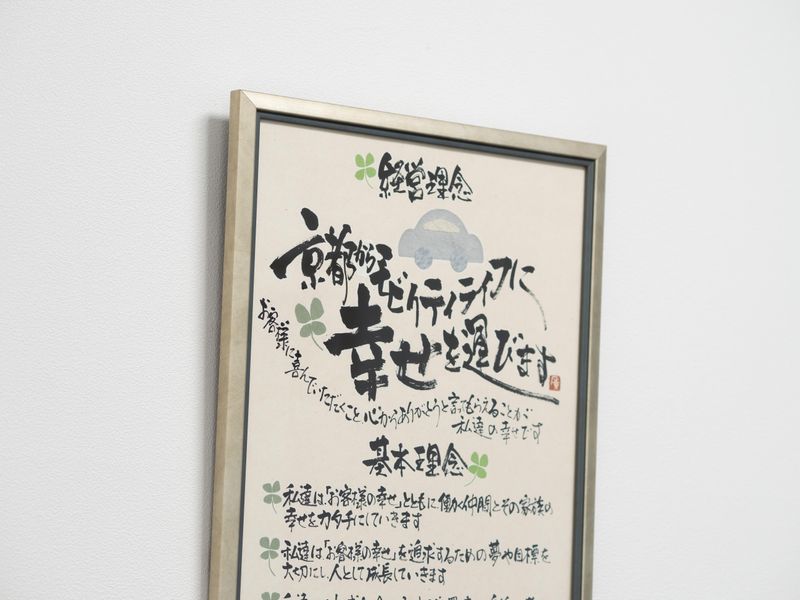 経営理念
京都からモビリティライフに
幸せを運びます
お客様に喜んでいただくこと、心からありがとうと言ってもらえることが
私達の幸せです
基本理念
私達は「お客様の幸せ」とともに働く仲間とその家族の
幸せをカタチにしていきます
私達は「お客様の幸せ」を追求するための夢や目標を
大切にし、人として成長していきます